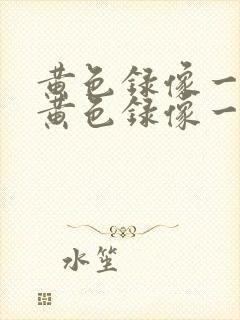 黄色録像一
黄色録像一
水笙